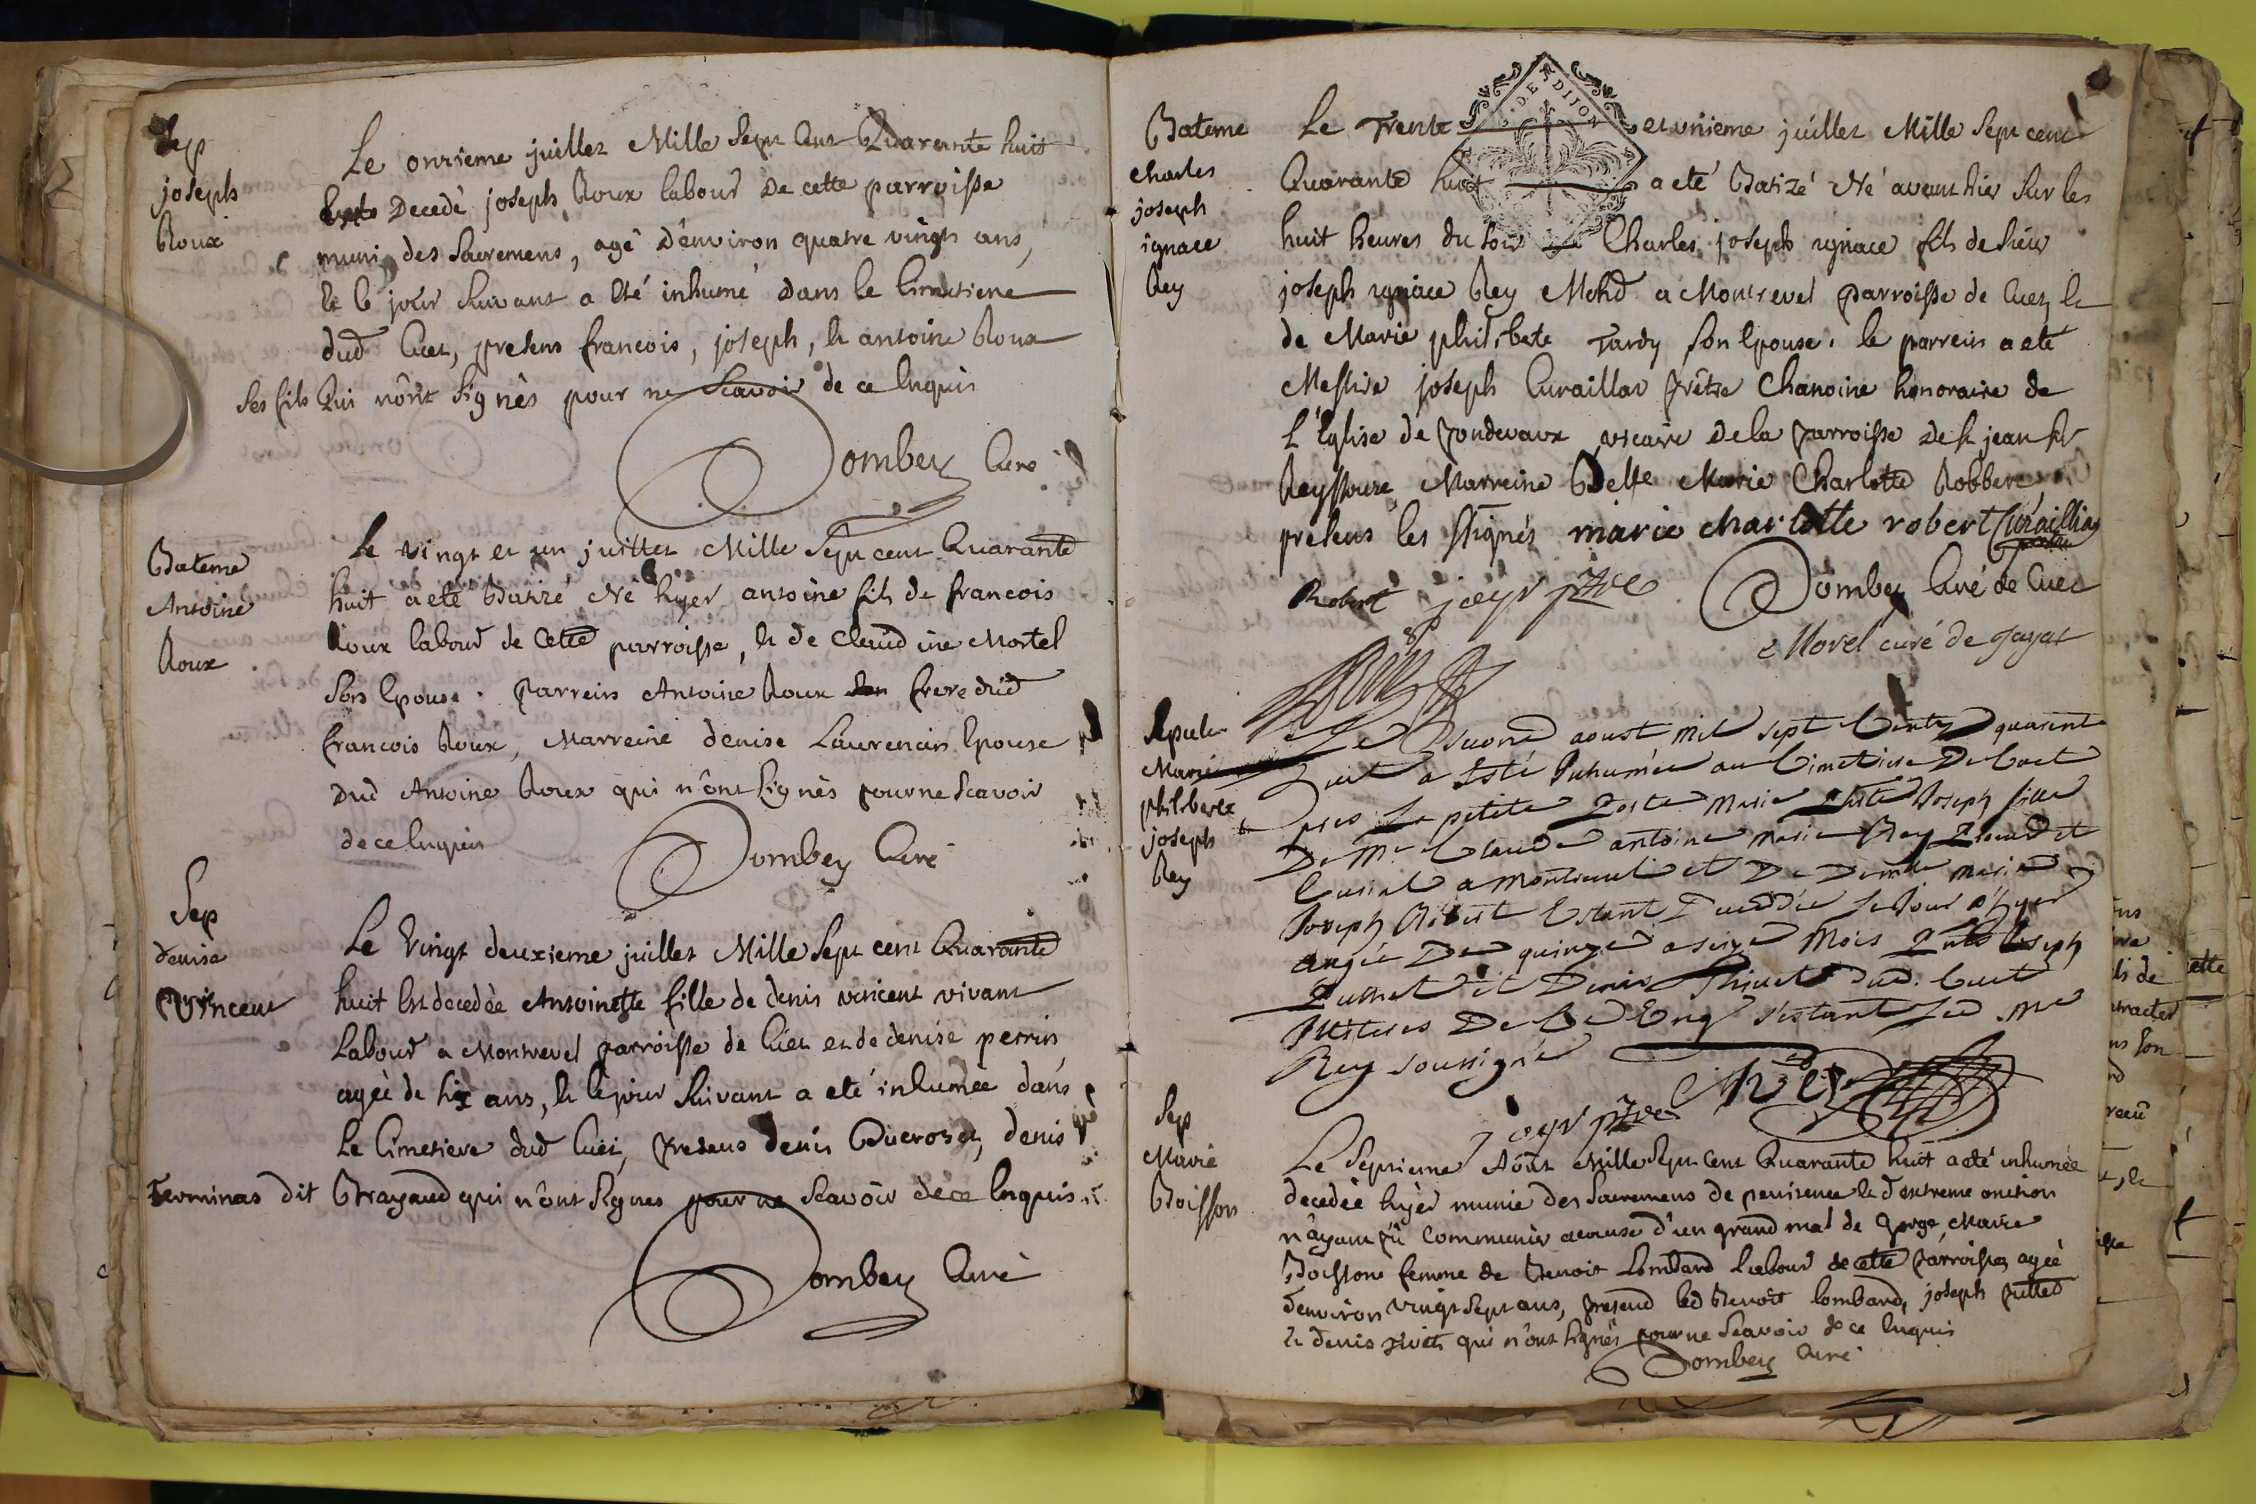 Sep
joseph
Roux
Le onzieme juillet Mille Sept Cent Quarante huit
Est Decedé joseph Roux labour De cette parroisse
muni des Sacremens, agé D'environ quatre vingts ans,
et le jour Suivant a Eté inhumé Dans le Cimetiere
dud Cuet, presens francois, joseph, et antoine Roux
ses fils Qui nônt Signés pour ne Scavoir de ce Enquis
Dombey Curé
Bateme
Antoine
Roux
Le vingt et un juillet Mille Sept cent Quarante
huit a eté Batizé Né hyer antoine fils de francois
Roux labour de Cette parroisse, et de Claudine Mortel
Son Epouse. Parrein Antoine Roux frere dud
francois Roux, Marreine denise Laurencin Epouse
Dud Antoine Roux qui n'ônt Signés pour ne Scavoir
de ce Enquis
Dombey Curé
Sep
denise
Vincent
Le Vingt deuxieme juillet Mille Sept cent Quarante
huit Est decedée Antoinette fille de denis vincent vivant
Labour a Montrevel parroisse de Cuet et de denise perrin
agée de Six ans, et le jour Suivant a eté inhumée dans
Le Cimetiere dud Cuet, Presens denis Ducroset, denis
Terminas dit Brayaud qui n'ônt Signes pour ne Scavoir de ce Enquis
Dombey Curé
Bateme
charles
joseph
ignace
Rey
DE DIJON
Le Trente et unieme juillet Mille Sept cent
Quarante huit a eté Batizé Né avant hier Sur les
huit heures du Soir Charles joseph ignace fils de Sieur
joseph ignace Rey Mchd a Montrevel parroisse de Cuet, et
de Marie philiberte Tardy Son Epouse. le parrein a eté
Messire joseph Curaillat Prêtre Chanoine honoraire de
L'Eglise de Pondevaux, vicaire De la Parroisse De St jean Sr
Reyssouze Marreine Delle Marie Charlotte Robbert
presens les Ssignés marie charlotte robert Curaillat
Robert joyr ptre Dombey Curé de Cuet
Morel curé de Jayat
Rey
Sepult
Marie
philiberte
joseph
Rey
Le Second aoust mil sept Cents quarente
huit a Esté Inhumée au Cimetiere De Cuet
pres La petite Porte Marie Joseph fille
De Mr Claude antoine Marie Rey et
a Montrevel et De Demlle Marie
Joseph Robert Estant Decedée Le Jour d'hyer
augée De quinze a seize Mois Joseph
et Denis dud. Cuet
De Ce Enq Estant Led. Mr
Rey soussigné
joyr ptre Rey
Sep
Marie
Boisson
Le Septieme Aôut Mille Sept Cent Quarante huit a eté inhumée
decedée hyer munie des Sacremens de penitence et d'extreme onction
n'ayant pû Communier acause d'un grand mal de gorge, Marie
Boissone femme de Benoit Lombard Labour de cette Parroisse, agée
D'environ vingt Sept ans, Presend led Benoit lombard, joseph
et denis qui n'ônt Signés pour ne Scavoir de ce Enquis
Dombey Curé